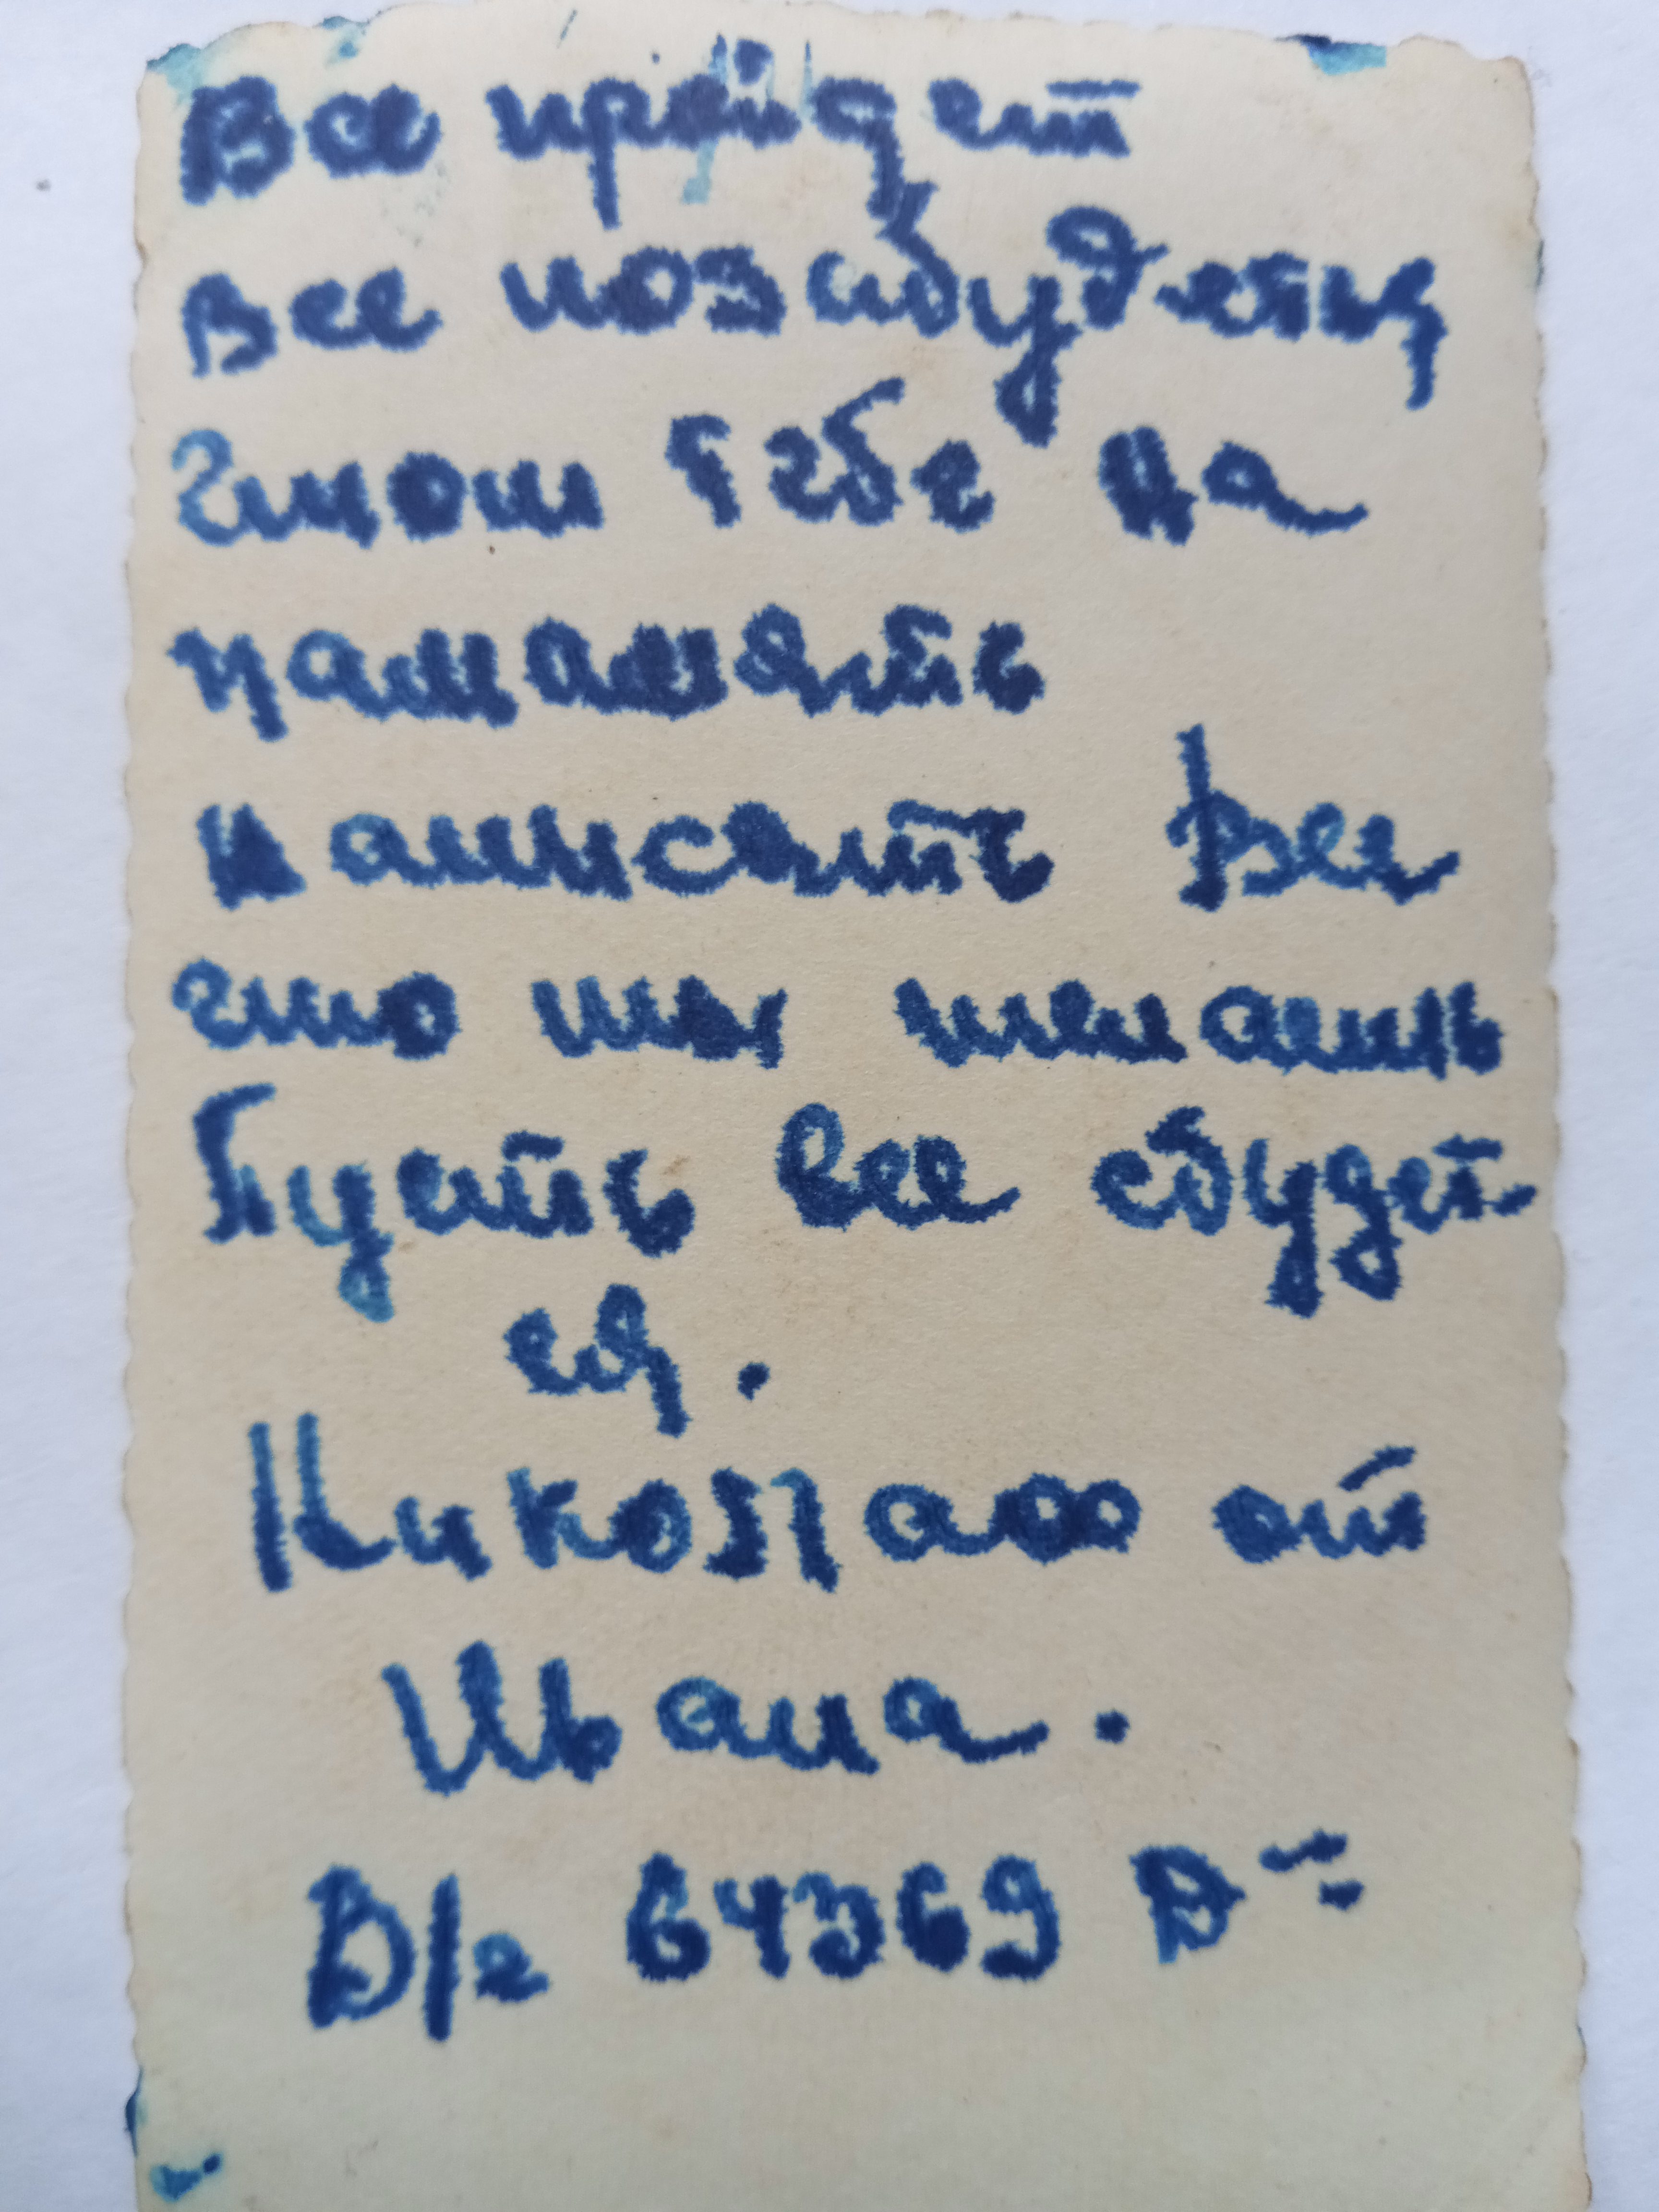 Все пройдет
все позабудется
Чтош тебе на
памамять
написать Все
что ты желаешь
Пусть все сбудет-
ся.
Николаю от
Ивана.
В/г 64369 Д"-